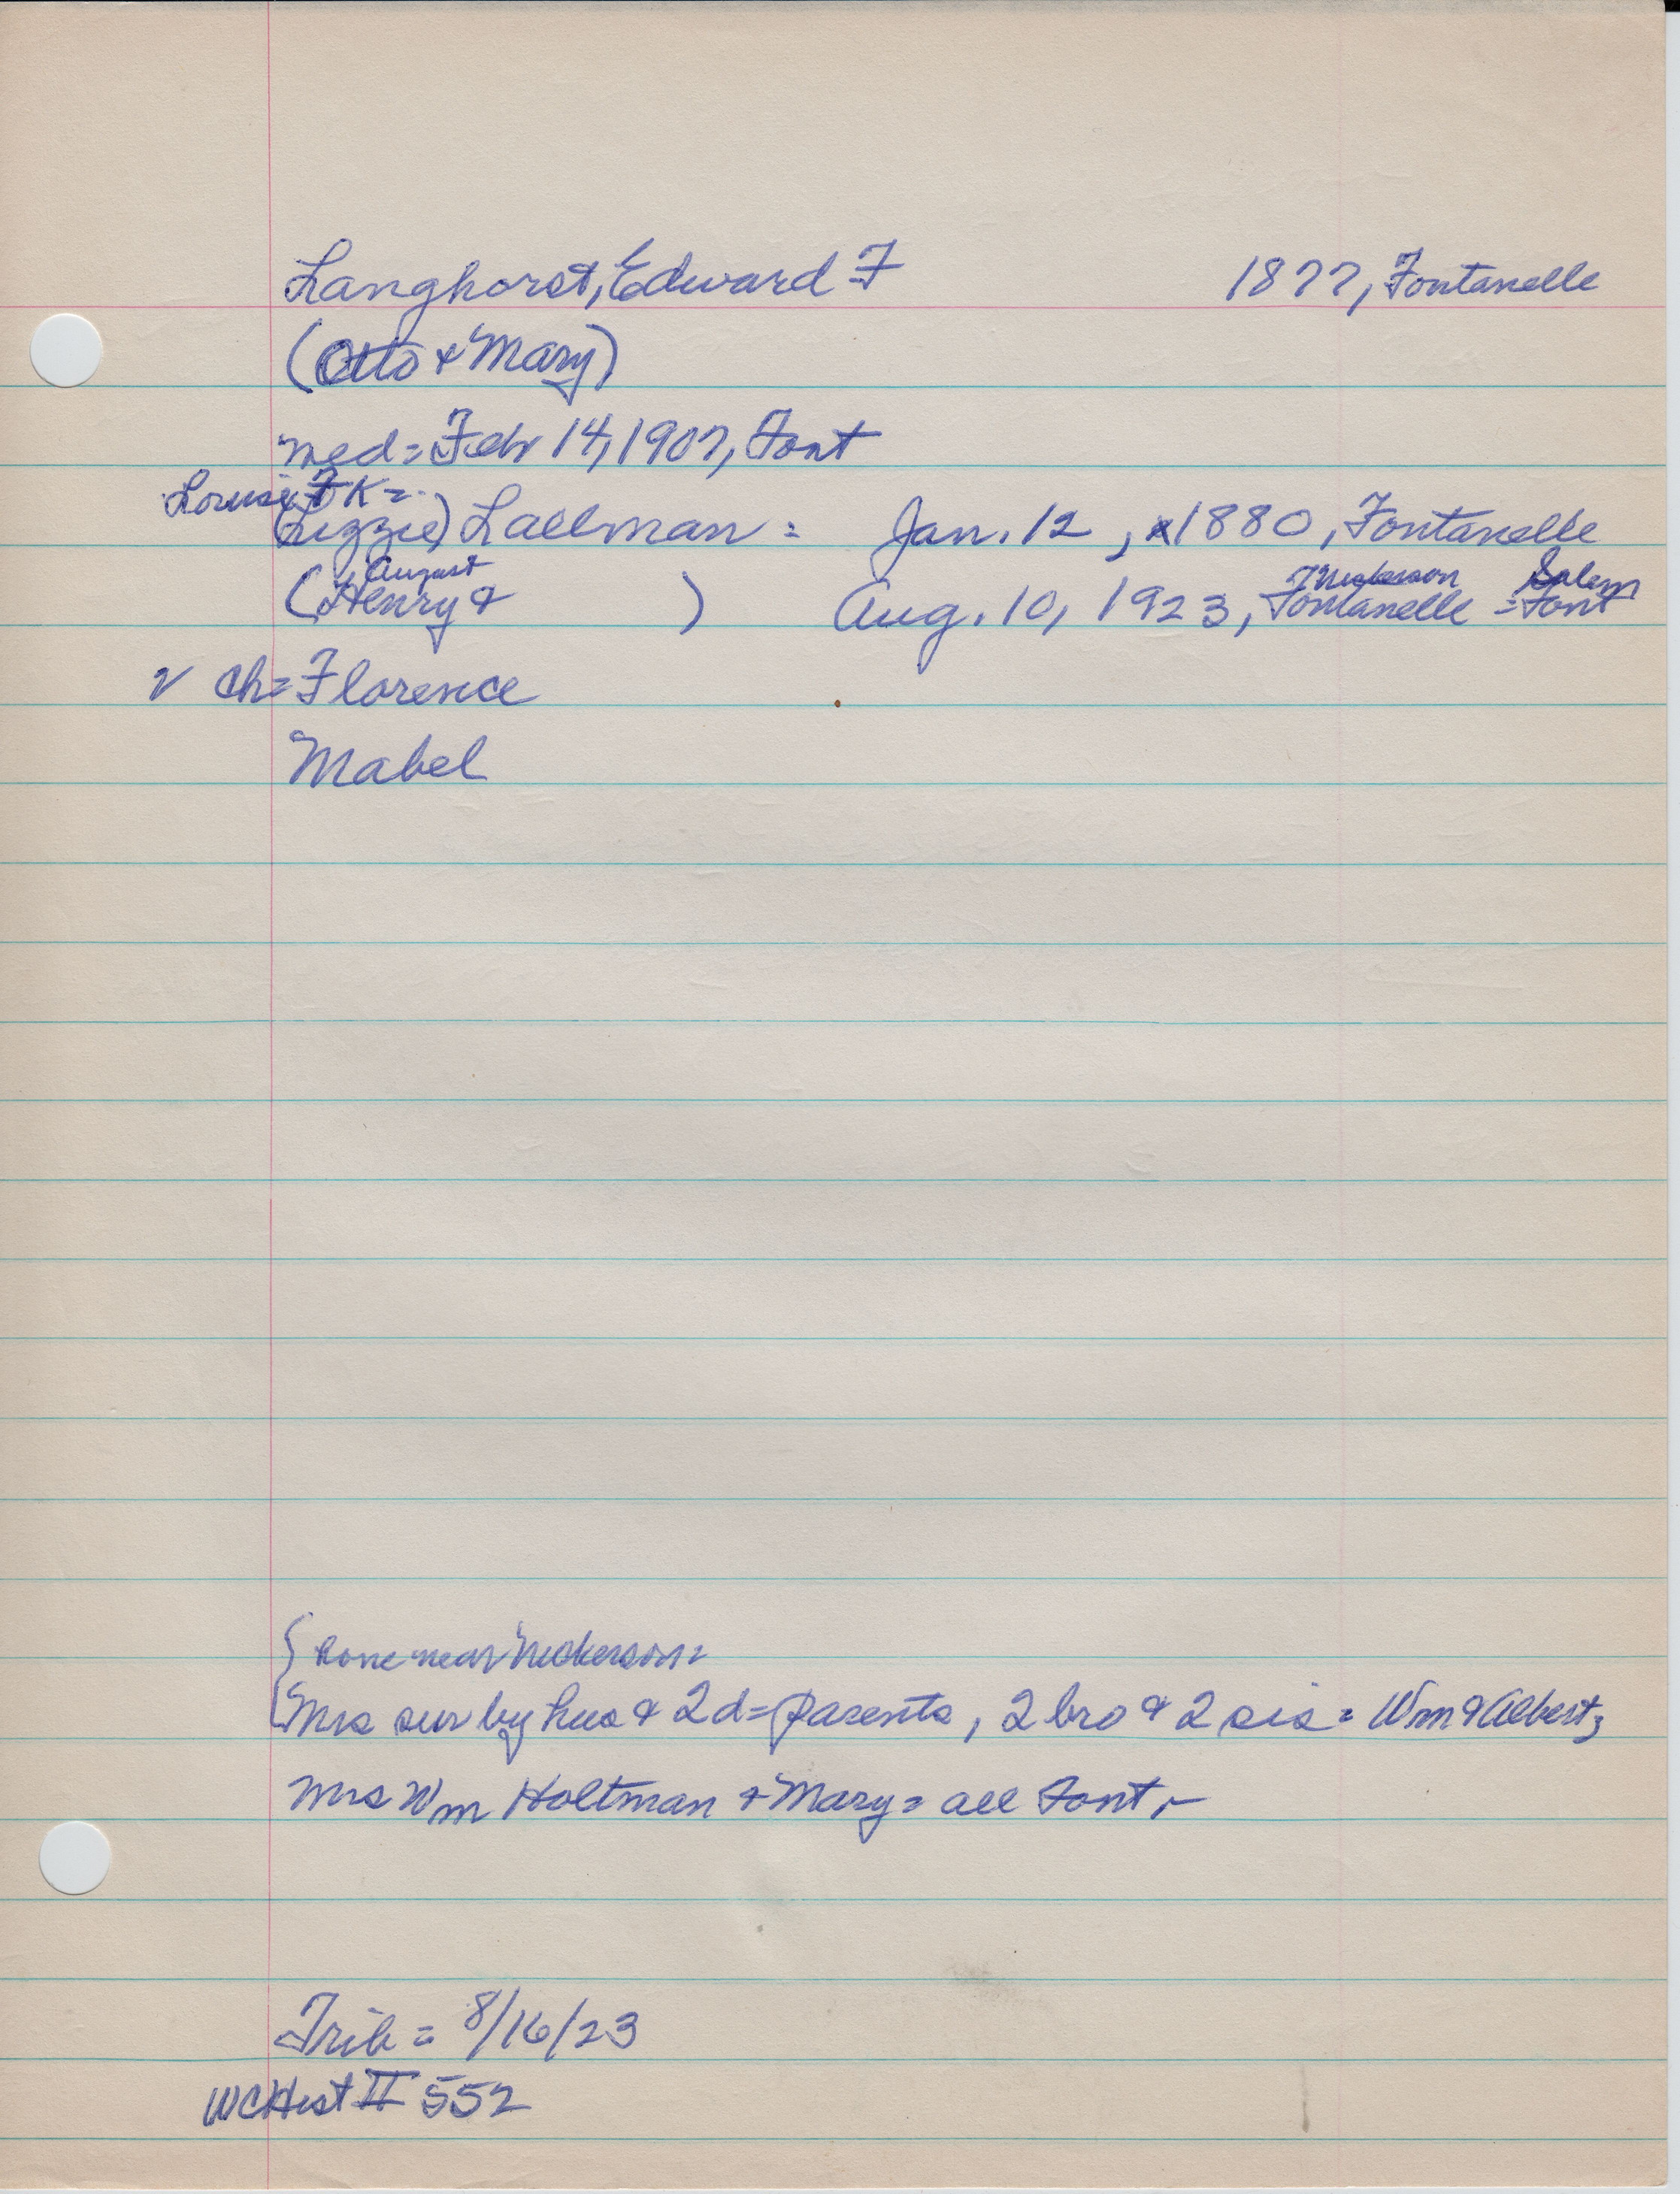 Langhorst, Edward F 1877, Fontanelle
(Otto & Mary)
med = Feb 14, 1907, Font
Louise K =
(Lizzie) Lallman = Jan. 12, 1880, Fontanelle
August Nickerson Salem
(Henry & ) Aug. 10, 1923, Fontanelle = Font
v ch = Florence
Mabel
{ near Nickerson =
Mrs sur by hus & 2 d = parents, 2 bro & 2 sis = Wm & Albert;
Mrs Wm Holtman & Mary = all Font, -
Trib = 8/16/23
WCHist II 552